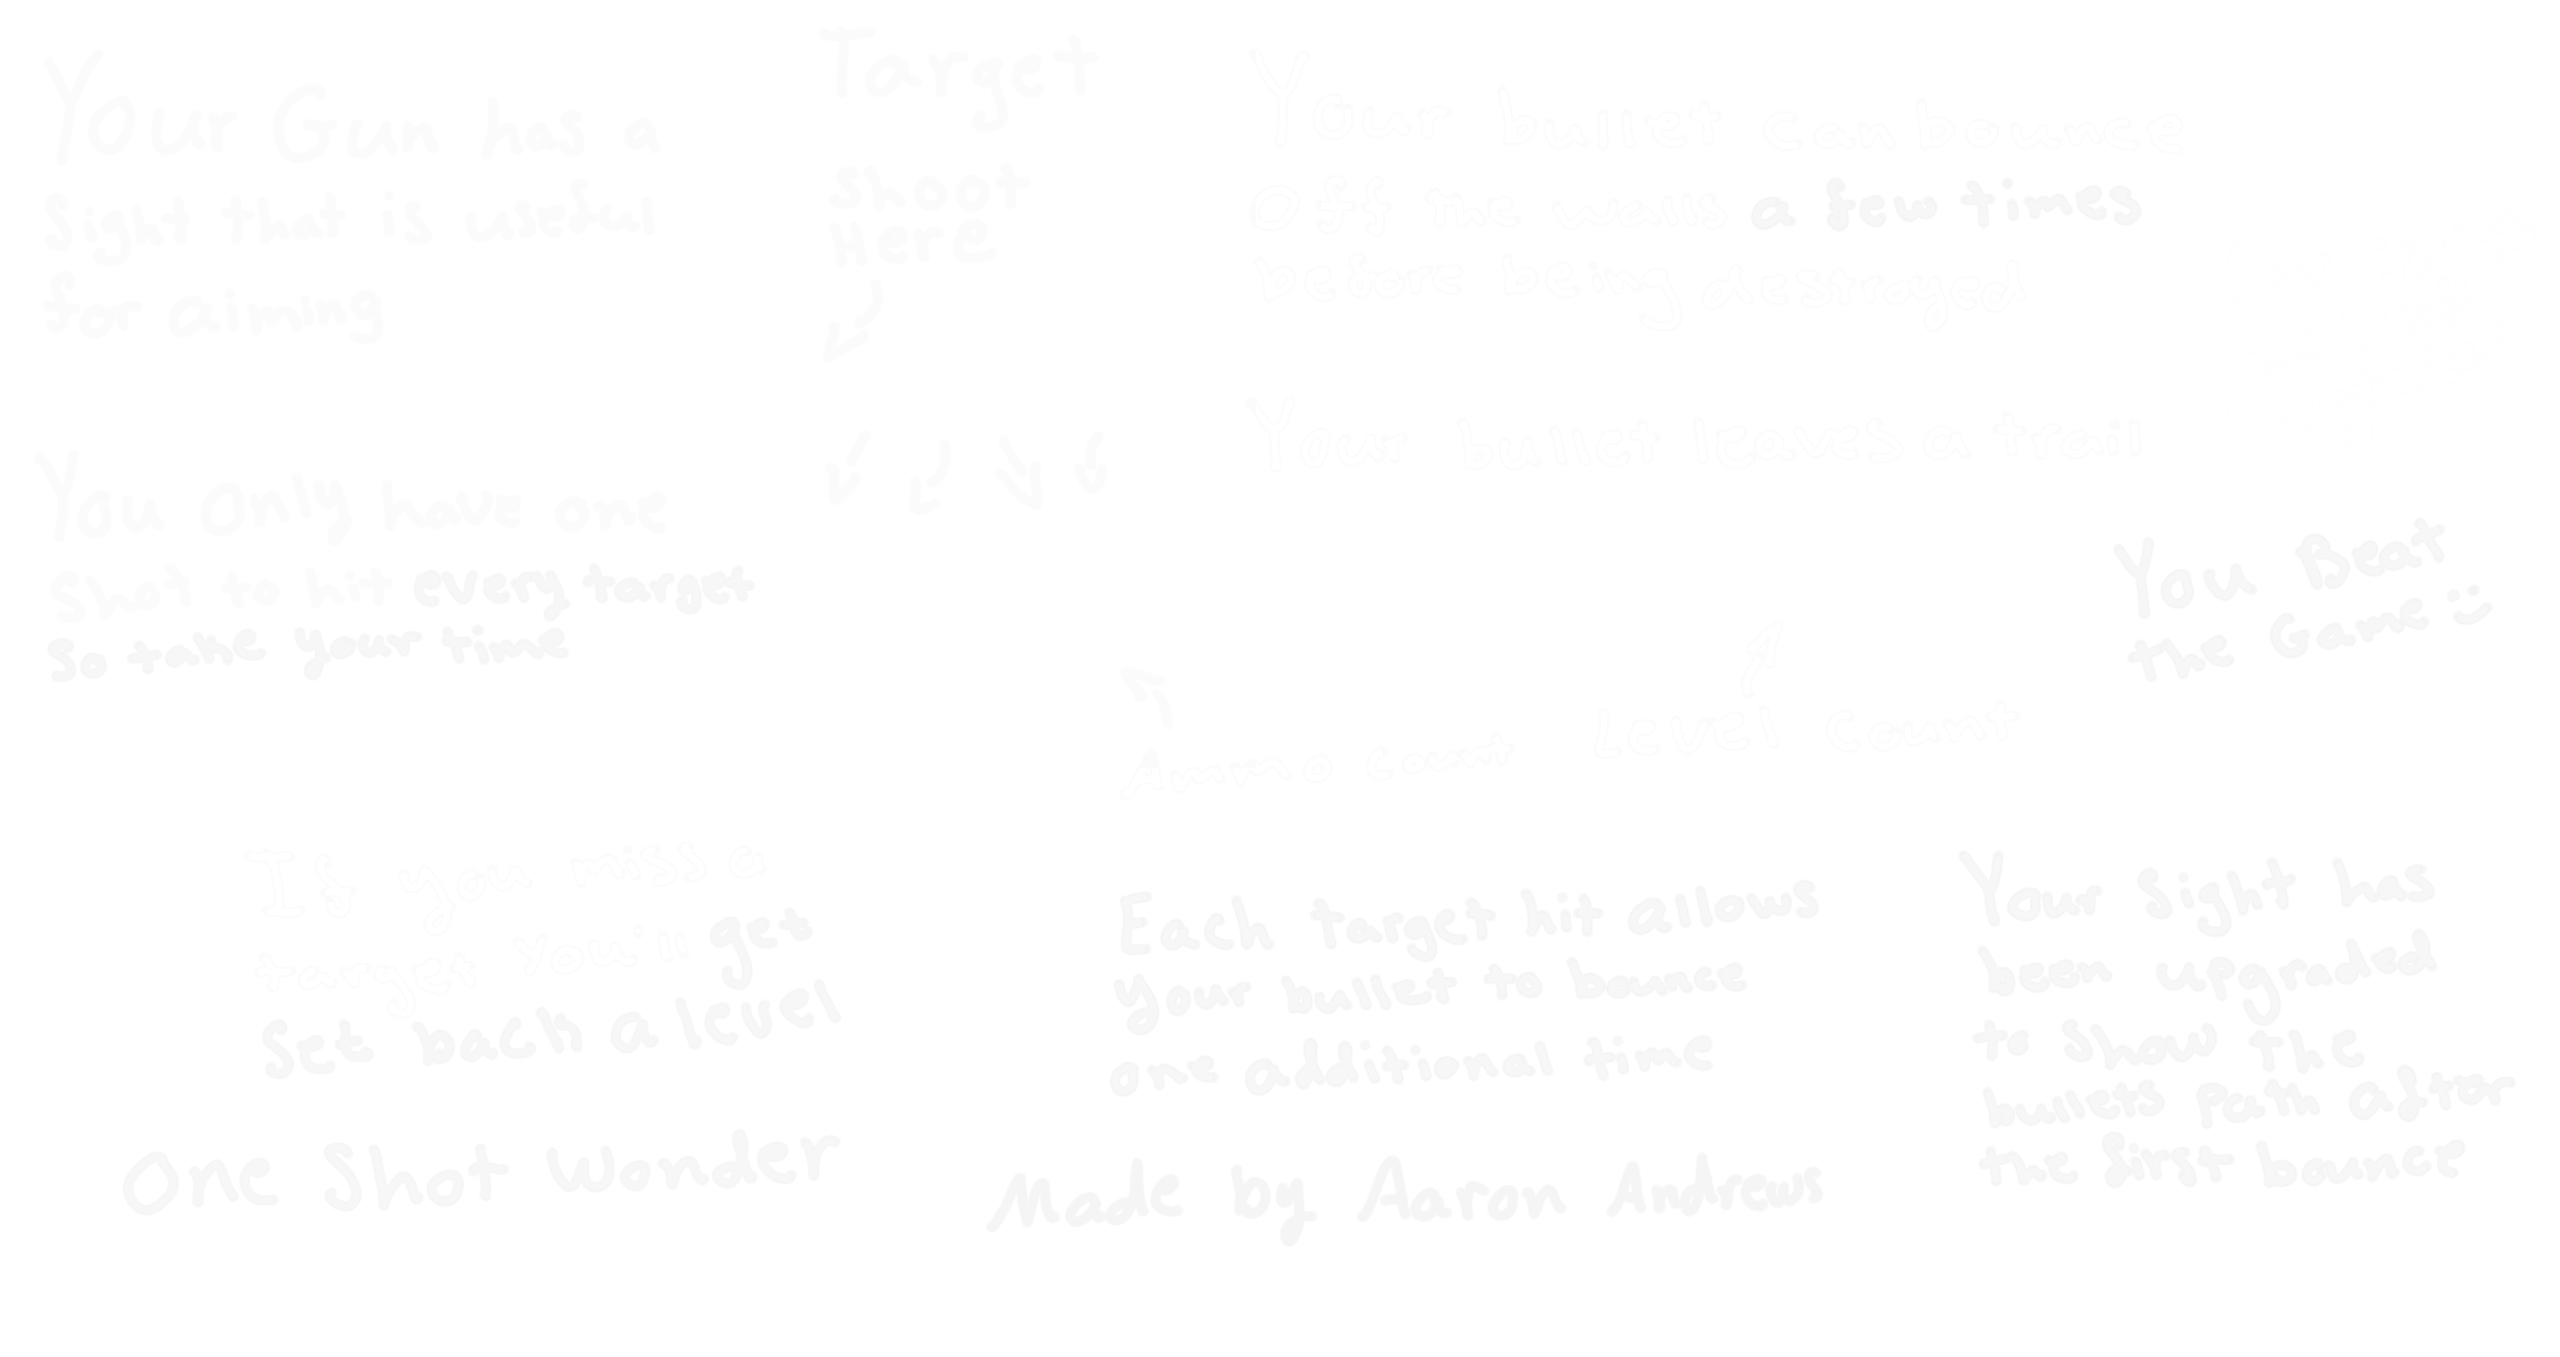 Your Gun has a
Sight that is useful
for aiming
Target
Shoot
Here
Your bullet can bounce
Off the walls a few times
before being destroyed
Your bullet leaves a trail
You Only have one
Shot to hit every target
so take your time
You Beat
the Game :)
Ammo Count
Level Count
If you miss a
target you'll get
Set back a level
Each target hit allows
your bullet to bounce
one additional time
Your Sight has
been upgraded
to show the
bullets Path after
the first bounce
One Shot Wonder
Made by Aaron Andrews